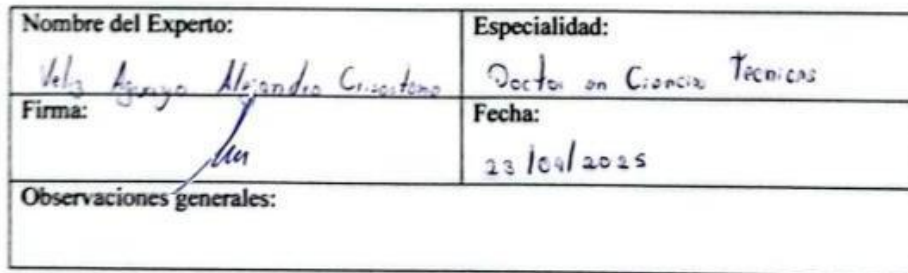 Nombre del Experto:
Veliz Aguayo Alejandro Crisostomo
Especialidad:
Doctor en Ciencias Técnicas
Firma:
Fecha:
23/04/2025
Observaciones generales: